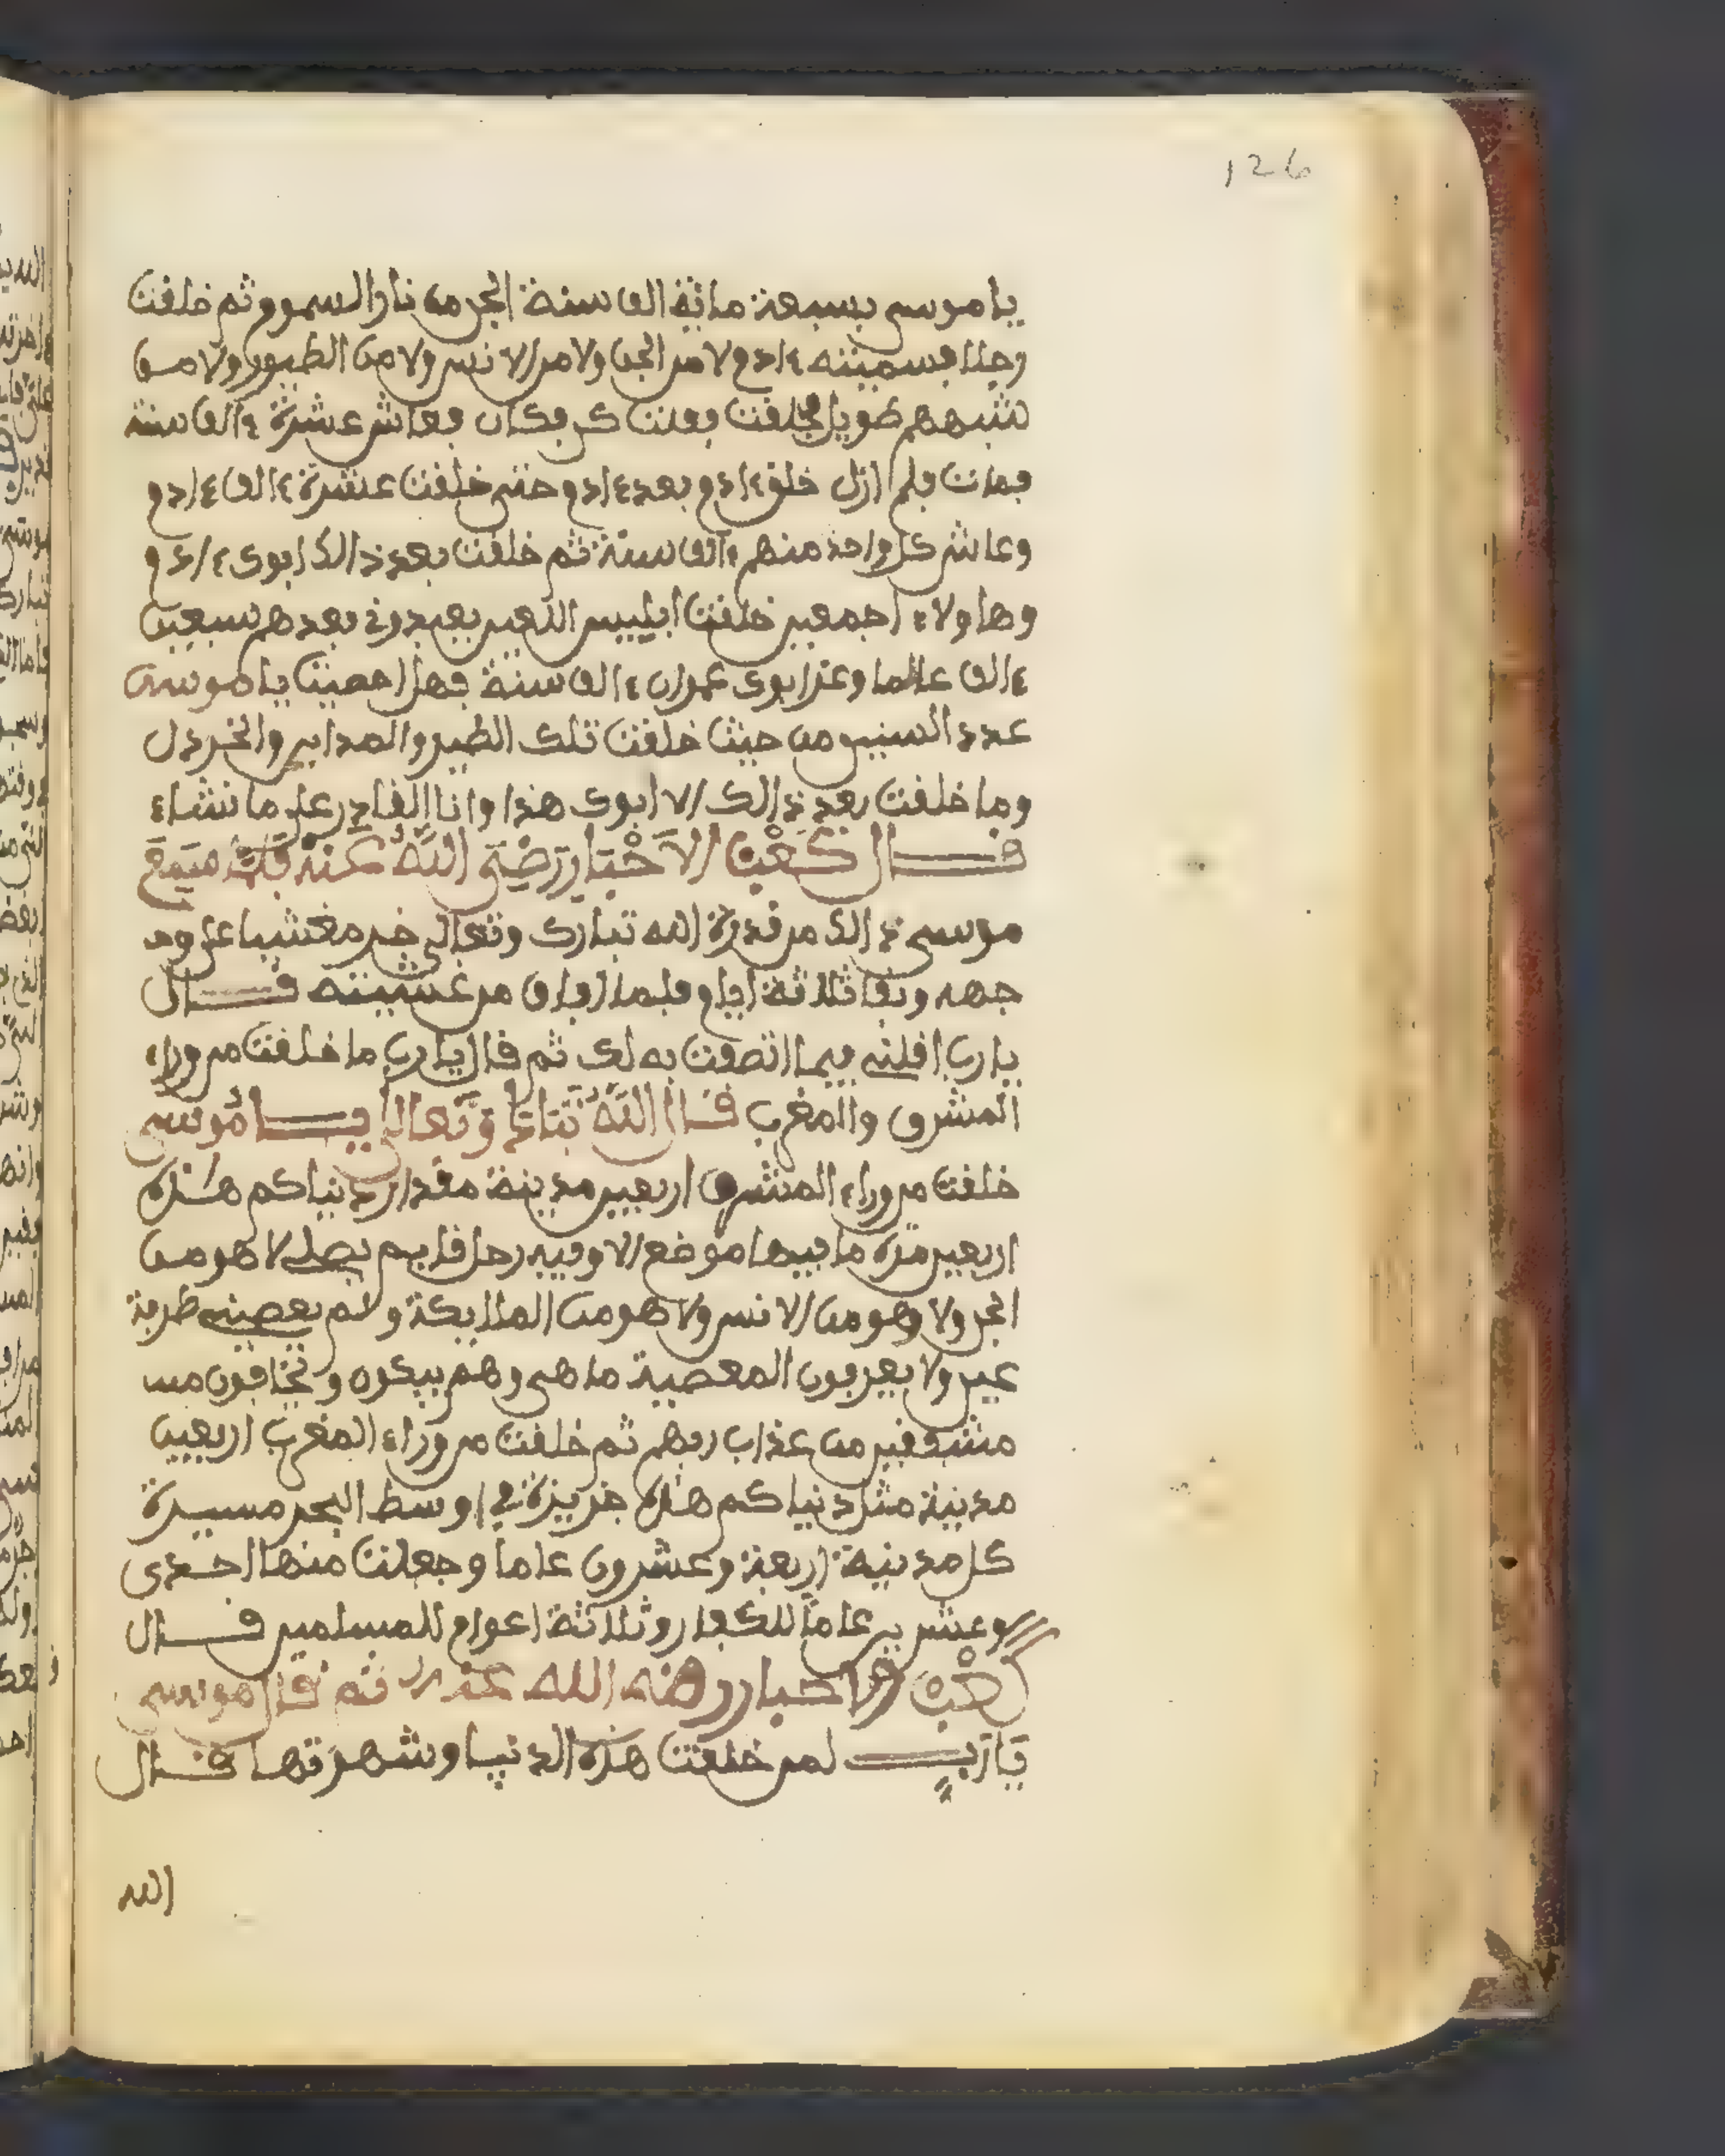 126
يا موسى بسبعة مائة الف سنة الجن من نار السموم ثم خلقت
رجلا فسميته ءادم لا من الجن ولا من الانس ولا من الطيور ولا من
شبههم طويل خلقت فقلت كن فكان فعاش عشرة ءالف سنة
فمات فلم ازل خلق ءادم بعد ءادم حتى خلقت عشرة ءالف ءادم
وعاش كل واحد منهم ءالف سنة ثم خلقت بعد ذالك ابوك ءادم
وهاولاء اجمعين خلقت ابليس بعدهم سبعين
ءالف عالما ابوك عمران ءالف سنة فهل احصيت يا موسى
عدد السنين من حيث خلقت تلك الطير والمداين والخردل
وما خلقت بعد ذالك الا ابوك هذا وانا القادر على ما نشاء
قال كعب الاحبار رضي الله عنه فلما سمع
موسى ذالك من قدرة الله تبارك وتعالى خر مغشيا على و
جهه وبقا ثلاثة ايام فلما افاق من غشيته قال
يا رب اقلني فيما به لك ثم قال يا رب ما خلقت من وراء
المشرق والمغرب قال الله تعالى يا موسى
خلقت من وراء المشرق اربعين مدينة مقدار دنياكم هذه
اربعين مرة ما فيها موضع الا وفيه رجل قايم يصلي لا هو من
الجن ولا وهو من الانس ولا هو من الملايكة ولم يعصيني طرفة
عين ولا يعرفون المعصية ما هي وهم يبكون ويخافون مس
مشفقين من عذاب ربهم ثم خلقت من وراء المغرب اربعين
مدينة مثل دنياكم هذه جزيزة في اوسط البحر مسيرة
كل مدينة اربعة وعشرون عاما وجعلت منها احدى
وعشرين عاما للكفار وثلاثة اعوام للمسلمين قال
كعب الاحبار رضي الله عنه ثم قال موسى
يا رب لمن خلقت هذه الدنيا وشهرتها قال
الله